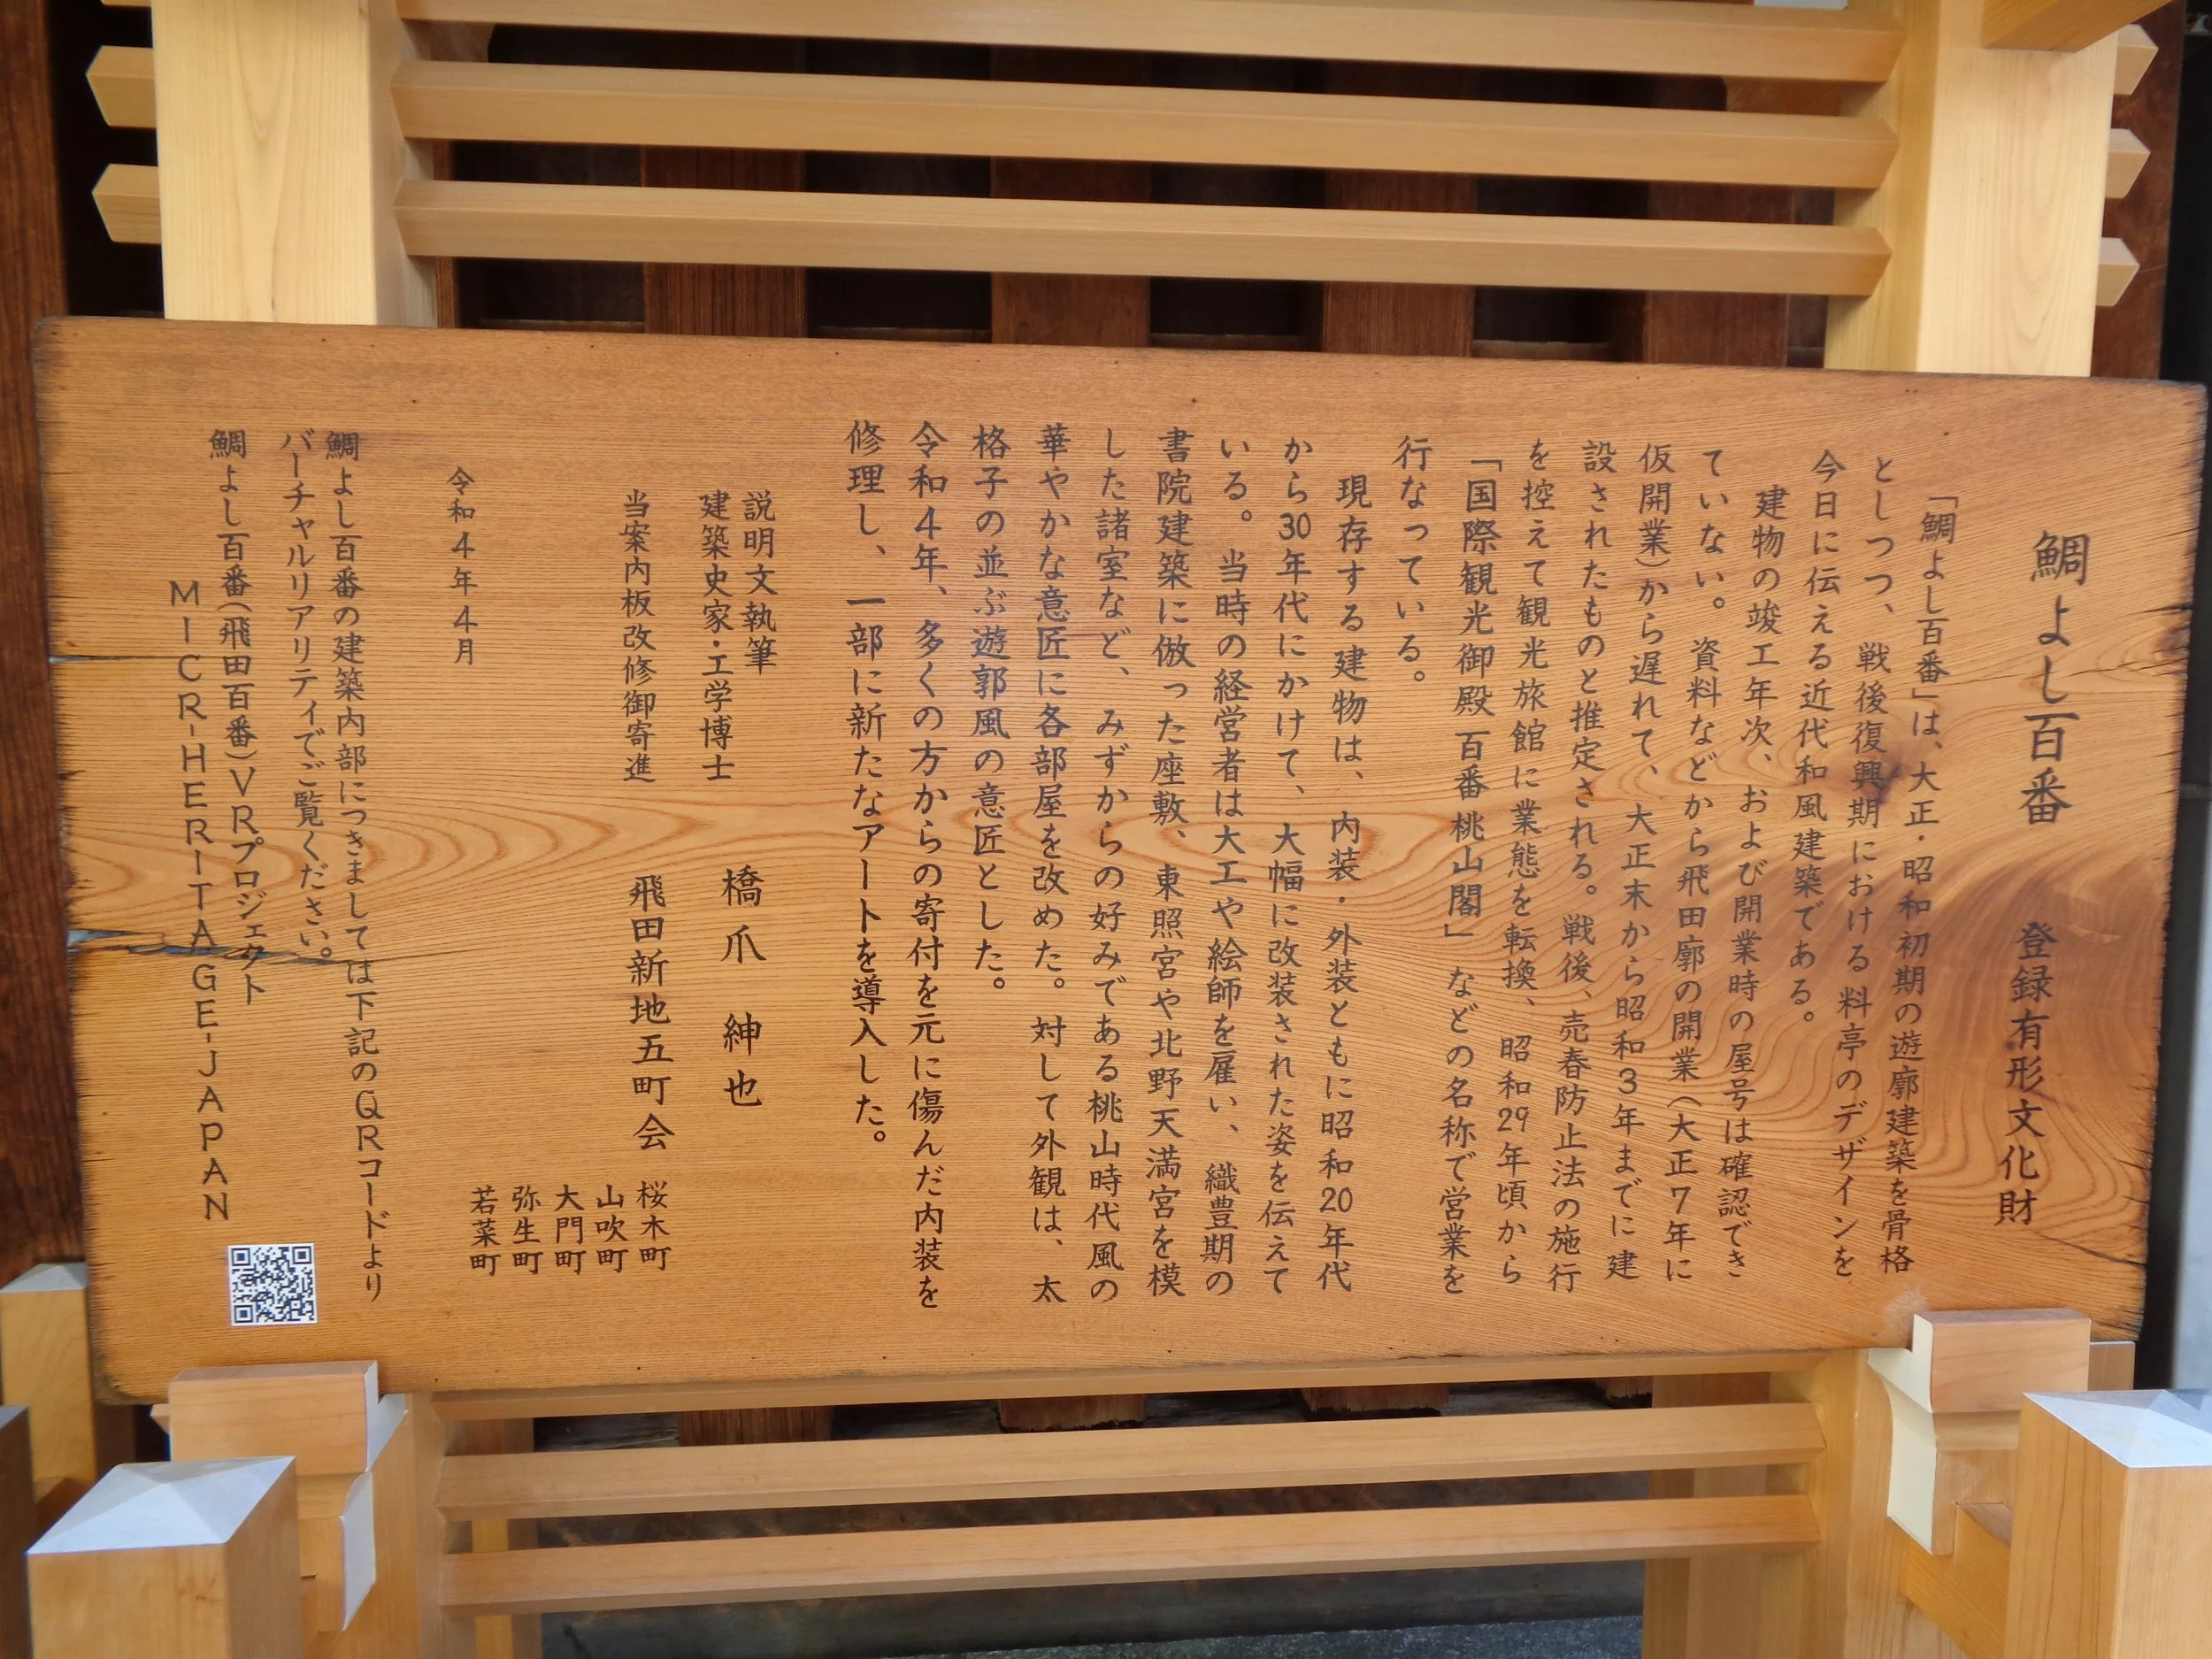 鯛よし百番　登録有形文化財
「鯛よし百番」は、大正・昭和初期の遊廓建築を骨格
としつつ、戦後復興期における料亭のデザインを
今日に伝える近代和風建築である。
建物の竣工年次、および開業時の屋号は確認でき
ていない。資料などから飛田廓の開業（大正7年に
仮開業）から遅れて、大正末から昭和3年までに建
設されたものと推定される。戦後、売春防止法の施行
を控えて観光旅館に業態を転換、昭和29年頃から
「国際観光御殿 百番 桃山閣」などの名称で営業を
行なっている。
現存する建物は、内装・外装ともに昭和20年代
から30年代にかけて、大幅に改装された姿を伝えて
いる。当時の経営者は大工や絵師を雇い、織豊期の
書院建築に倣った座敷、東照宮や北野天満宮を模
した諸室など、みずからの好みである桃山時代風の
華やかな意匠に各部屋を改めた。対して外観は、太
格子の並ぶ遊郭風の意匠とした。
令和4年、多くの方からの寄付を元に傷んだ内装を
修理し、一部に新たなアートを導入した。
説明文執筆
建築史家・工学博士　橋爪　紳也
当案内板改修御寄進　飛田新地五町会
桜木町
山吹町
大門町
弥生町
若菜町
令和4年4月
鯛よし百番の建築内部につきましては下記のQRコードより
バーチャルリアリティでご覧ください。
鯛よし百番（飛田百番）VRプロジェクト
MICR-HERITAGE-JAPAN